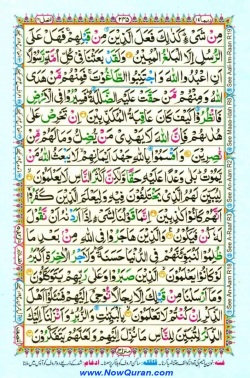 النحل ١٦
٢٣٥
ربما ١٤
مِنْ شَيْءٍ كَذٰلِكَ فَعَلَ الَّذِيْنَ مِنْ قَبْلِهِمْ فَهَلْ عَلَى
الرُّسُلِ اِلَّا الْبَلٰغُ الْمُبِيْنُ وَلَقَدْ بَعَثْنَا فِيْ كُلِّ اُمَّةٍ رَّسُوْلًا
اَنِ اعْبُدُوا اللّٰهَ وَاجْتَنِبُوا الطَّاغُوْتَ فَمِنْهُمْ مَّنْ هَدَى
اللّٰهُ وَمِنْهُمْ مَّنْ حَقَّتْ عَلَيْهِ الضَّلٰلَةُ فَسِيْرُوْا فِي الْاَرْضِ
فَانْظُرُوْا كَيْفَ كَانَ عَاقِبَةُ الْمُكَذِّبِيْنَ اِنْ تَحْرِصْ عَلٰى
هُدٰىهُمْ فَاِنَّ اللّٰهَ لَا يَهْدِيْ مَنْ يُّضِلُّ وَمَا لَهُمْ مِّنْ
نّٰصِرِيْنَ وَاَقْسَمُوْا بِاللّٰهِ جَهْدَ اَيْمَانِهِمْ لَا يَبْعَثُ اللّٰهُ مَنْ
يَّمُوْتُ بَلٰى وَعْدًا عَلَيْهِ حَقًّا وَّلٰكِنَّ اَكْثَرَ النَّاسِ لَا يَعْلَمُوْنَ
لِيُبَيِّنَ لَهُمُ الَّذِيْ يَخْتَلِفُوْنَ فِيْهِ وَلِيَعْلَمَ الَّذِيْنَ كَفَرُوْا
اَنَّهُمْ كَانُوْا كٰذِبِيْنَ اِنَّمَا قَوْلُنَا لِشَيْءٍ اِذَا اَرَدْنٰهُ اَنْ نَّقُوْلَ
لَهٗ كُنْ فَيَكُوْنُ وَالَّذِيْنَ هَاجَرُوْا فِي اللّٰهِ مِنْ بَعْدِ مَا
ظُلِمُوْا لَنُبَوِّئَنَّهُمْ فِي الدُّنْيَا حَسَنَةً وَلَاَجْرُ الْاٰخِرَةِ اَكْبَرُ
لَوْ كَانُوْا يَعْلَمُوْنَ الَّذِيْنَ صَبَرُوْا وَعَلٰى رَبِّهِمْ يَتَوَكَّلُوْنَ
وَمَا اَرْسَلْنَا مِنْ قَبْلِكَ اِلَّا رِجَالًا نُّوْحِيْ اِلَيْهِمْ فَسْـَٔلُوْا اَهْلَ
الذِّكْرِ اِنْ كُنْتُمْ لَا تَعْلَمُوْنَ بِالْبَيِّنٰتِ وَالزُّبُرِ وَاَنْزَلْنَا اِلَيْكَ
الذِّكْرَ لِتُبَيِّنَ لِلنَّاسِ مَا نُزِّلَ اِلَيْهِمْ وَلَعَلَّهُمْ يَتَفَكَّرُوْنَ
www.NowQuran.com